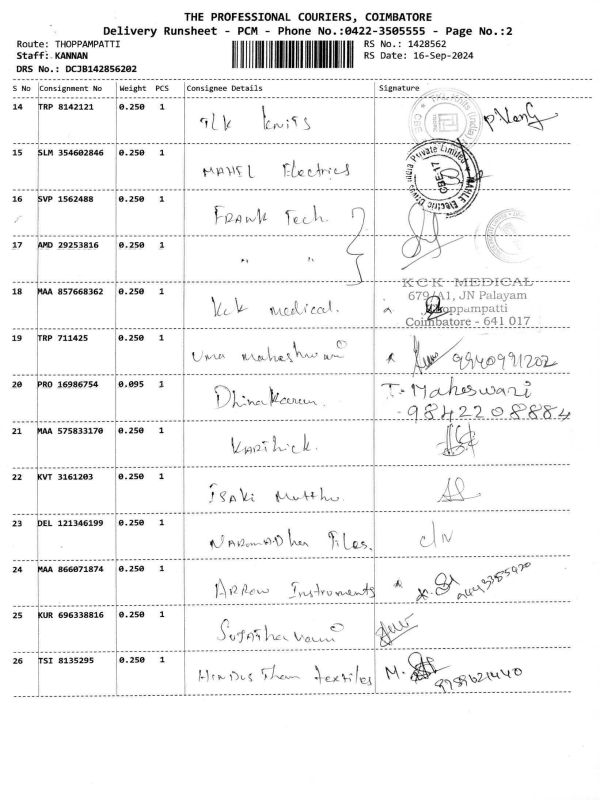 THE PROFESSIONAL COURIERS, COIMBATORE
Delivery Runsheet - PCM - Phone No.:0422-3505555 - Page No.:2
Route: THOPPAMPATTI RS No.: 1428562
Staff: KANNAN RS Date: 16-Sep-2024
DRS No.: DCJB142856202
S No Consignment No Weight PCS Consignee Details Signature
14 TRP 8142121 0.250 1 knits
15 SLM 354602846 0.250 1 MAHEL Electrics
16 SVP 1562488 0.250 1 FRANK Tech.
17 AMD 29253816 0.250 1 " "
KCK MEDICAL
679/A1, JN Palayam
18 MAA 857668362 0.250 1 Kck medical. Thoppampatti
Coimbatore - 641 017
19 TRP 711425 0.250 1 Uma maheshwari 9940991202
20 PRO 16986754 0.095 1 Dhinakaran. T. Maheswari
9842208884
21 MAA 575833170 0.250 1 Karthick.
22 KVT 3161203 0.250 1 Isaki Muthu.
23 DEL 121346199 0.250 1 Files.
24 MAA 866071874 0.250 1 Arrow Instruments
25 KUR 696338816 0.250 1
26 TSI 8135295 0.250 1 Hindusthan textiles M.
9789621440